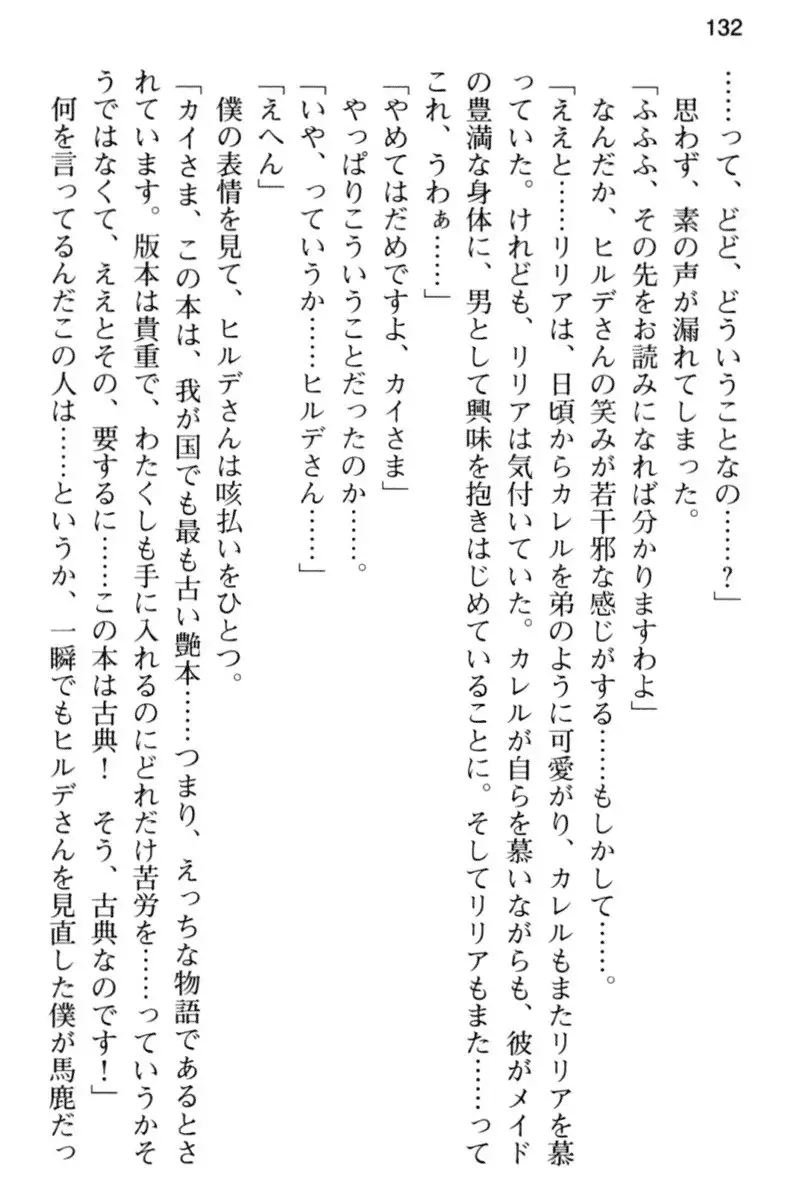 132
……って、どど、どういうことなの……?」
思わず、素の声が漏れてしまった。
「ふふふ、その先をお読みになれば分かりますわよ」
なんだか、ヒルデさんの笑みが若干邪な感じがする……もしかして……。
「ええと……リリアは、日頃からカレルを弟のように可愛がり、カレルもまたリリアを慕
っていた。けれども、リリアは気付いていた。カレルが自らを慕いながらも、彼がメイド
の豊満な身体に、男として興味を抱きはじめていることに。そしてリリアもまた……って
これ、うわぁ……」
「やめてはだめですよ、カイさま」
やっぱりこういうことだったのか……。
「いや、っていうか……ヒルデさん……」
「えへん」
僕の表情を見て、ヒルデさんは咳払いをひとつ。
「カイさま、この本は、我が国でも最も古い艶本……つまり、えっちな物語であるとさ
れています。版本は貴重で、わたくしも手に入れるのにどれだけ苦労を……っていうかそ
うではなくて、ええとその、要するに……この本は古典! そう、古典なのです!」
何を言ってるんだこの人は……というか、一瞬でもヒルデさんを見直した僕が馬鹿だっ